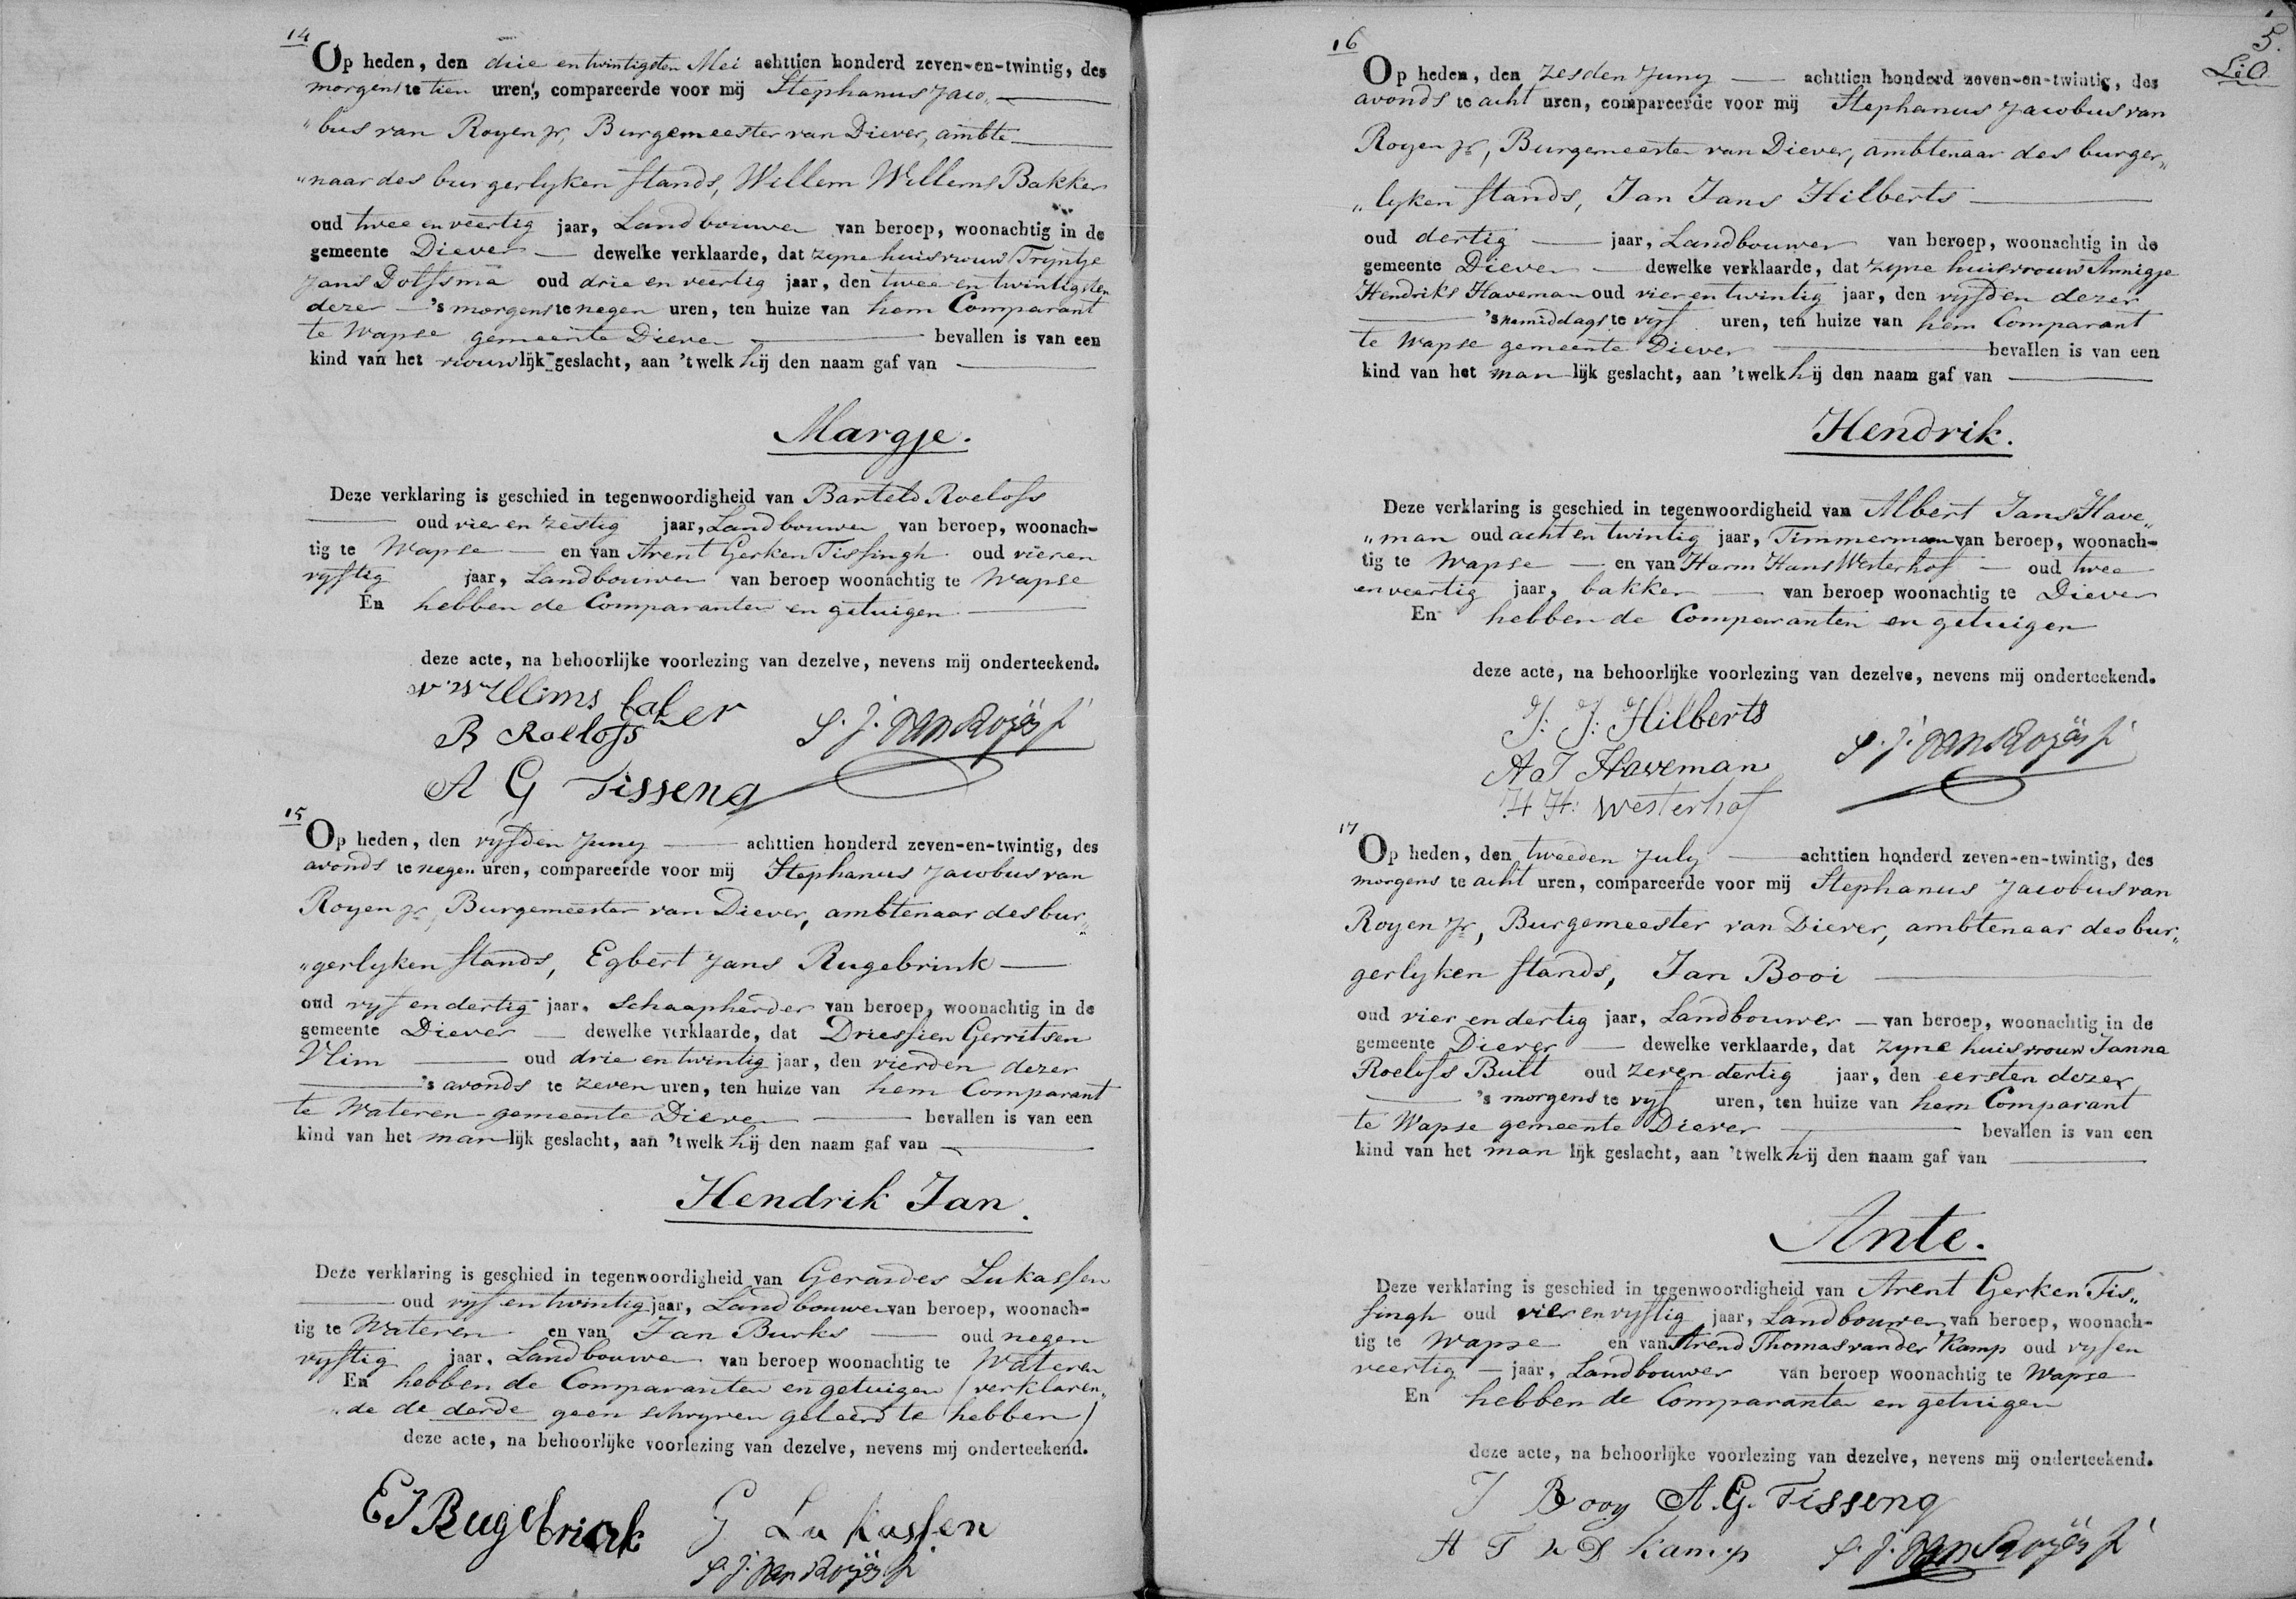 14
Op heden, den drie en twintigsten Mei achttien honderd zeven-en-twintig, des
morgens te tien uren, compareerde voor mij Stephanus Jaco„
„bus van Royen jr, Burgemeester van Diever, ambte
„naar des burgerlyken stands, Willem Willems Bakker
oud twee en veertig jaar, Landbouwer van beroep, woonachtig in de
gemeente Diever dewelke verklaarde, dat zyne huisvrouw Tryntje
Jans Dolfsma oud drie en veertig jaar, den twee en twintigsten
dezer 's morgens te negen uren, ten huize van hem Comparant
te Wapse gemeente Diever bevallen is van een
kind van het vrouwlijk geslacht, aan 't welk hij den naam gaf van
Margje.
Deze verklaring is geschied in tegenwoordigheid van Barteld Roelofs
oud vier en zestig jaar, Landbouwer van beroep, woonach-
tig te Wapse en van Arent Gerken Tissingh oud vier en
vyftig jaar, Landbouwer van beroep woonachtig te Wapse
En hebben de Comparanten en getuigen
deze acte, na behoorlijke voorlezing van dezelve, nevens mij onderteekend.
w willims baker
B Roelofs S. J. van Royen jr
A G Tisseng
15
Op heden, den vyfden Juny achttien honderd zeven-en-twintig, des
avonds te negen uren, compareerde voor mij Stephanus Jacobus van
Royen jr, Burgemeester van Diever, ambtenaar des bur„
„gerlyken stands, Egbert Jans Rugebrink
oud vyf en dertig jaar, Schaapherder van beroep, woonachtig in de
gemeente Diever dewelke verklaarde, dat Driessien Gerritsen
Vlim oud drie en twintig jaar, den vierden dezer
's avonds te zeven uren, ten huize van hem Comparant
te Wateren gemeente Diever bevallen is van een
kind van het manlijk geslacht, aan 't welk hij den naam gaf van
Hendrik Jan.
Deze verklaring is geschied in tegenwoordigheid van Gerardes Lukassen
oud vyf en twintig jaar, Landbouwer van beroep, woonach-
tig te Wateren en van Jan Burks oud negen
vyftig jaar, Landbouwer van beroep woonachtig te Wateren
En hebben de Comparanten en getuigen (verklaren„
„de de derde geen schryven geleerd te hebben)
deze acte, na behoorlijke voorlezing van dezelve, nevens mij onderteekend.
E J Rugebrink G Lukassen
S. J. van Royen jr
5.
16
Op heden, den zesden Juny achttien honderd zeven-en-twintig, des
avonds te acht uren, compareerde voor mij Stephanus Jacobus van
Royen jr, Burgemeester van Diever, ambtenaar des burger„
„lyken stands, Jan Jans Hilberts
oud dertig jaar, Landbouwer van beroep, woonachtig in de
gemeente Diever dewelke verklaarde, dat zyne huisvrouw Annigje
Hendriks Haveman oud vier en twintig jaar, den vyfden dezer
's namiddags te vyf uren, ten huize van hem Comparant
te Wapse gemeente Diever bevallen is van een
kind van het manlijk geslacht, aan 't welk hij den naam gaf van
Hendrik.
Deze verklaring is geschied in tegenwoordigheid van Albert Jans Have„
„man oud acht en twintig jaar, Timmerman van beroep, woonach-
tig te Wapse en van Harm Hans Westerhof oud twee
en veertig jaar, bakker van beroep woonachtig te Diever
En hebben de Comparanten en getuigen
deze acte, na behoorlijke voorlezing van dezelve, nevens mij onderteekend.
J: J: Hilberts
A J Haveman S. J. van Royen jr
H H: westerhof
17
Op heden, den tweeden July achttien honderd zeven-en-twintig, des
morgens te acht uren, compareerde voor mij Stephanus Jacobus van
Royen jr, Burgemeester van Diever, ambtenaar des bur„
gerlyken stands, Jan Booi
oud vier en dertig jaar, Landbouwer van beroep, woonachtig in de
gemeente Diever dewelke verklaarde, dat zyne huisvrouw Janna
Roelofs Bult oud zeven dertig jaar, den eersten dezer
's morgens te vyf uren, ten huize van hem Comparant
te Wapse gemeente Diever bevallen is van een
kind van het manlijk geslacht, aan 't welk hij den naam gaf van
Ante.
Deze verklaring is geschied in tegenwoordigheid van Arent Gerken Tis„
singh oud vier en vyftig jaar, Landbouwer van beroep, woonach-
tig te Wapse en van Arend Thomas van der Kamp oud vyf en
veertig jaar, Landbouwer van beroep woonachtig te Wapse
En hebben de Comparanten en getuigen
deze acte, na behoorlijke voorlezing van dezelve, nevens mij onderteekend.
J Booy A. G. Tisseng
A T v D Kamp S. J. van Royen jr